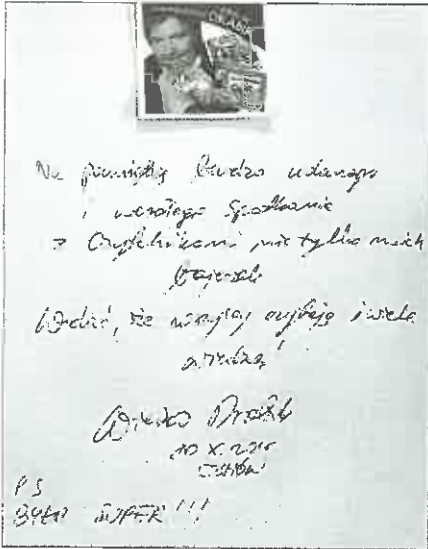 Na pamiątkę bardzo udanego
i wesołego spotkania
z Czytelnikami nie tylko moich
książek
Widać, że wszyscy czytają i wiele
wiedzą!
10 X.
PS
BYŁO SUPER!!!